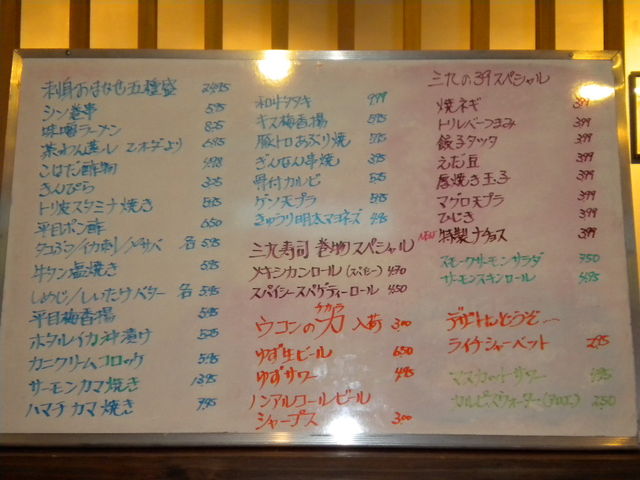 刺身おまかせ五種盛 2495
シソ巻串 595
味噌ラーメン 825
茶わん蒸し 2オーダーより 695
こはだ酢物 495
きんぴら 395
トリ皮スタミナ焼き 595
平目ポン酢 650
タコぶつ/イカ刺し/〆サバ 各 595
牛タン塩焼き 595
しめじ/しいたけバター 各 595
平目梅香揚 595
ホタルイカ沖漬け 595
カニクリームコロッケ 595
サーモンカマ焼き 1395
ハマチカマ焼き 795
和牛タタキ 999
キス梅香揚 595
豚トロあぶり焼 595
ぎんなん串焼 395
骨付カルビ 595
ゲソ天プラ 595
きゅうり明太マヨネーズ 495
三九寿司 巻物スペシャル
メキシカンロール (スパイシー) 490
スパイシースパゲティーロール 450
ウコンの力 チカラ 入荷 300
ゆず生ビール 650
ゆずサワー 495
ノンアルコールビール
シャープス 300
三九の39スペシャル
焼ネギ 399
トリレバーつまみ 399
餃子タッタ 399
えだ豆 399
厚焼き玉子 399
マグロ天プラ 399
ひじき 399
NEW 特製ナチョス 399
スモークサーモンサラダ 750
サーモンスキンロール 495
デザートにどうぞ...
ライチシャーベット 295
マスカットサワー 595
カルピスウォーター(アロエ) 250